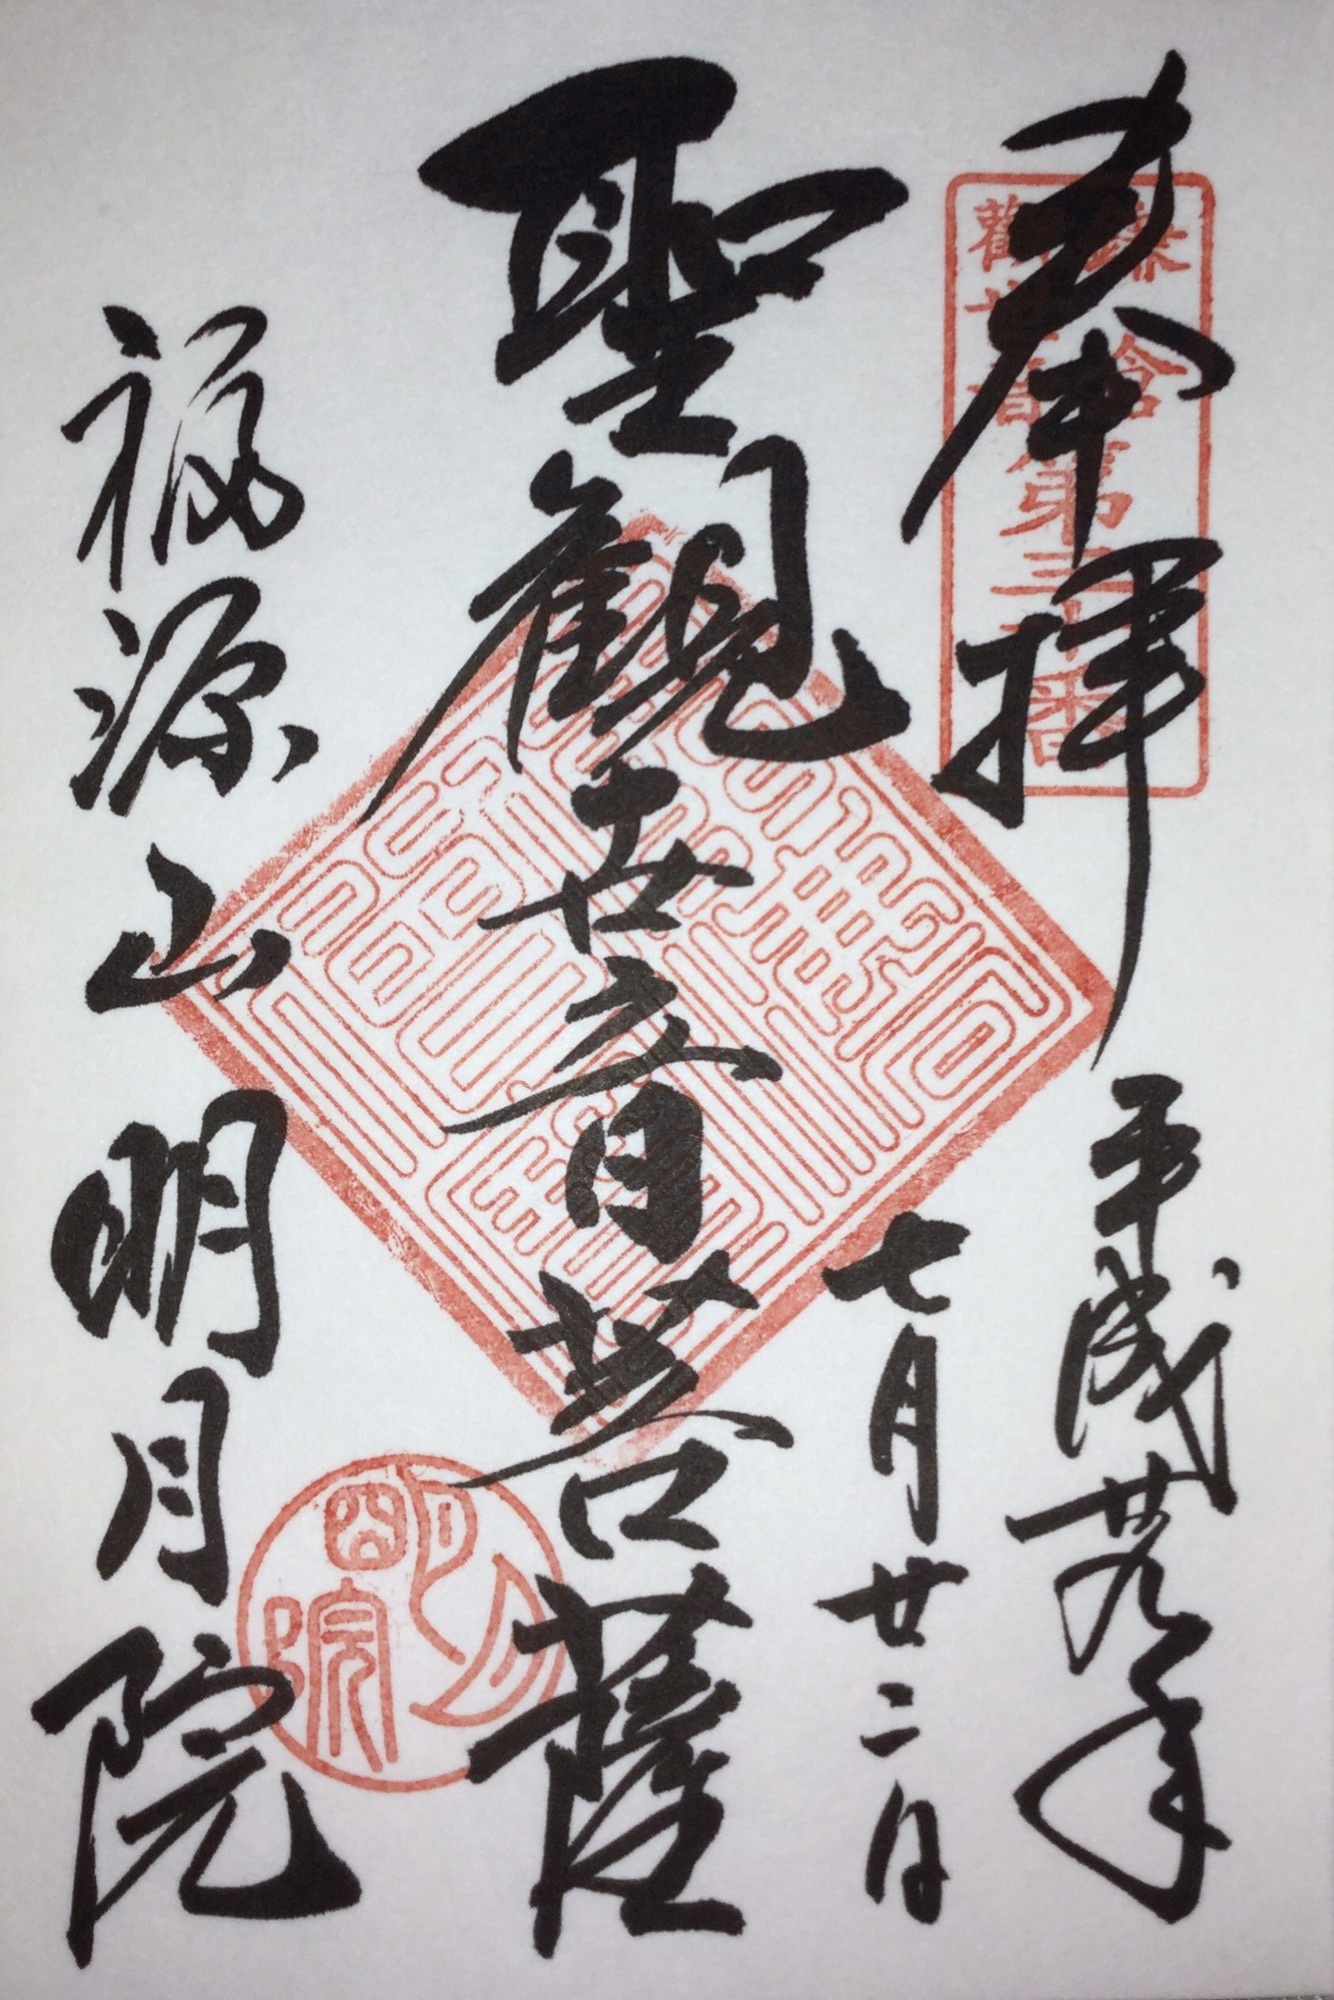 奉拝
鎌倉
第三十番
平成廿九年
七月廿二日
聖観世音菩薩
福源山明月院
明月院